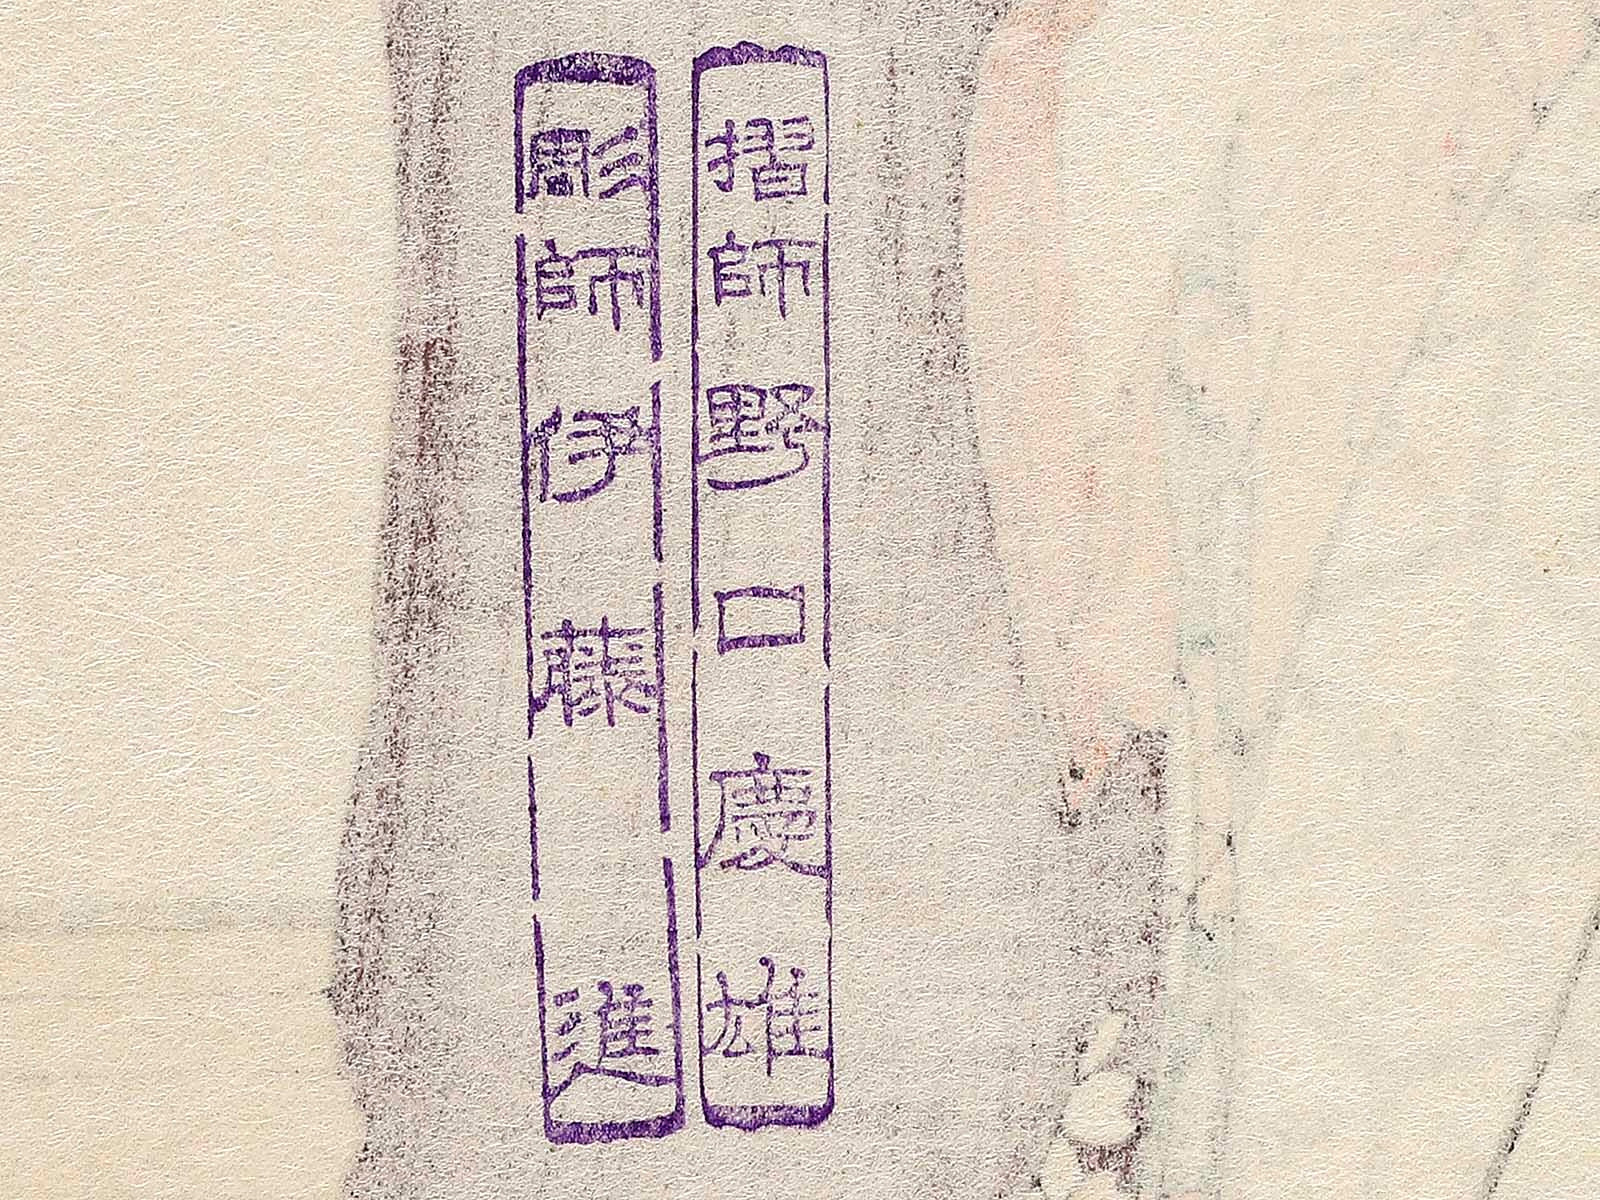 摺師野口慶雄
彫師伊藤進